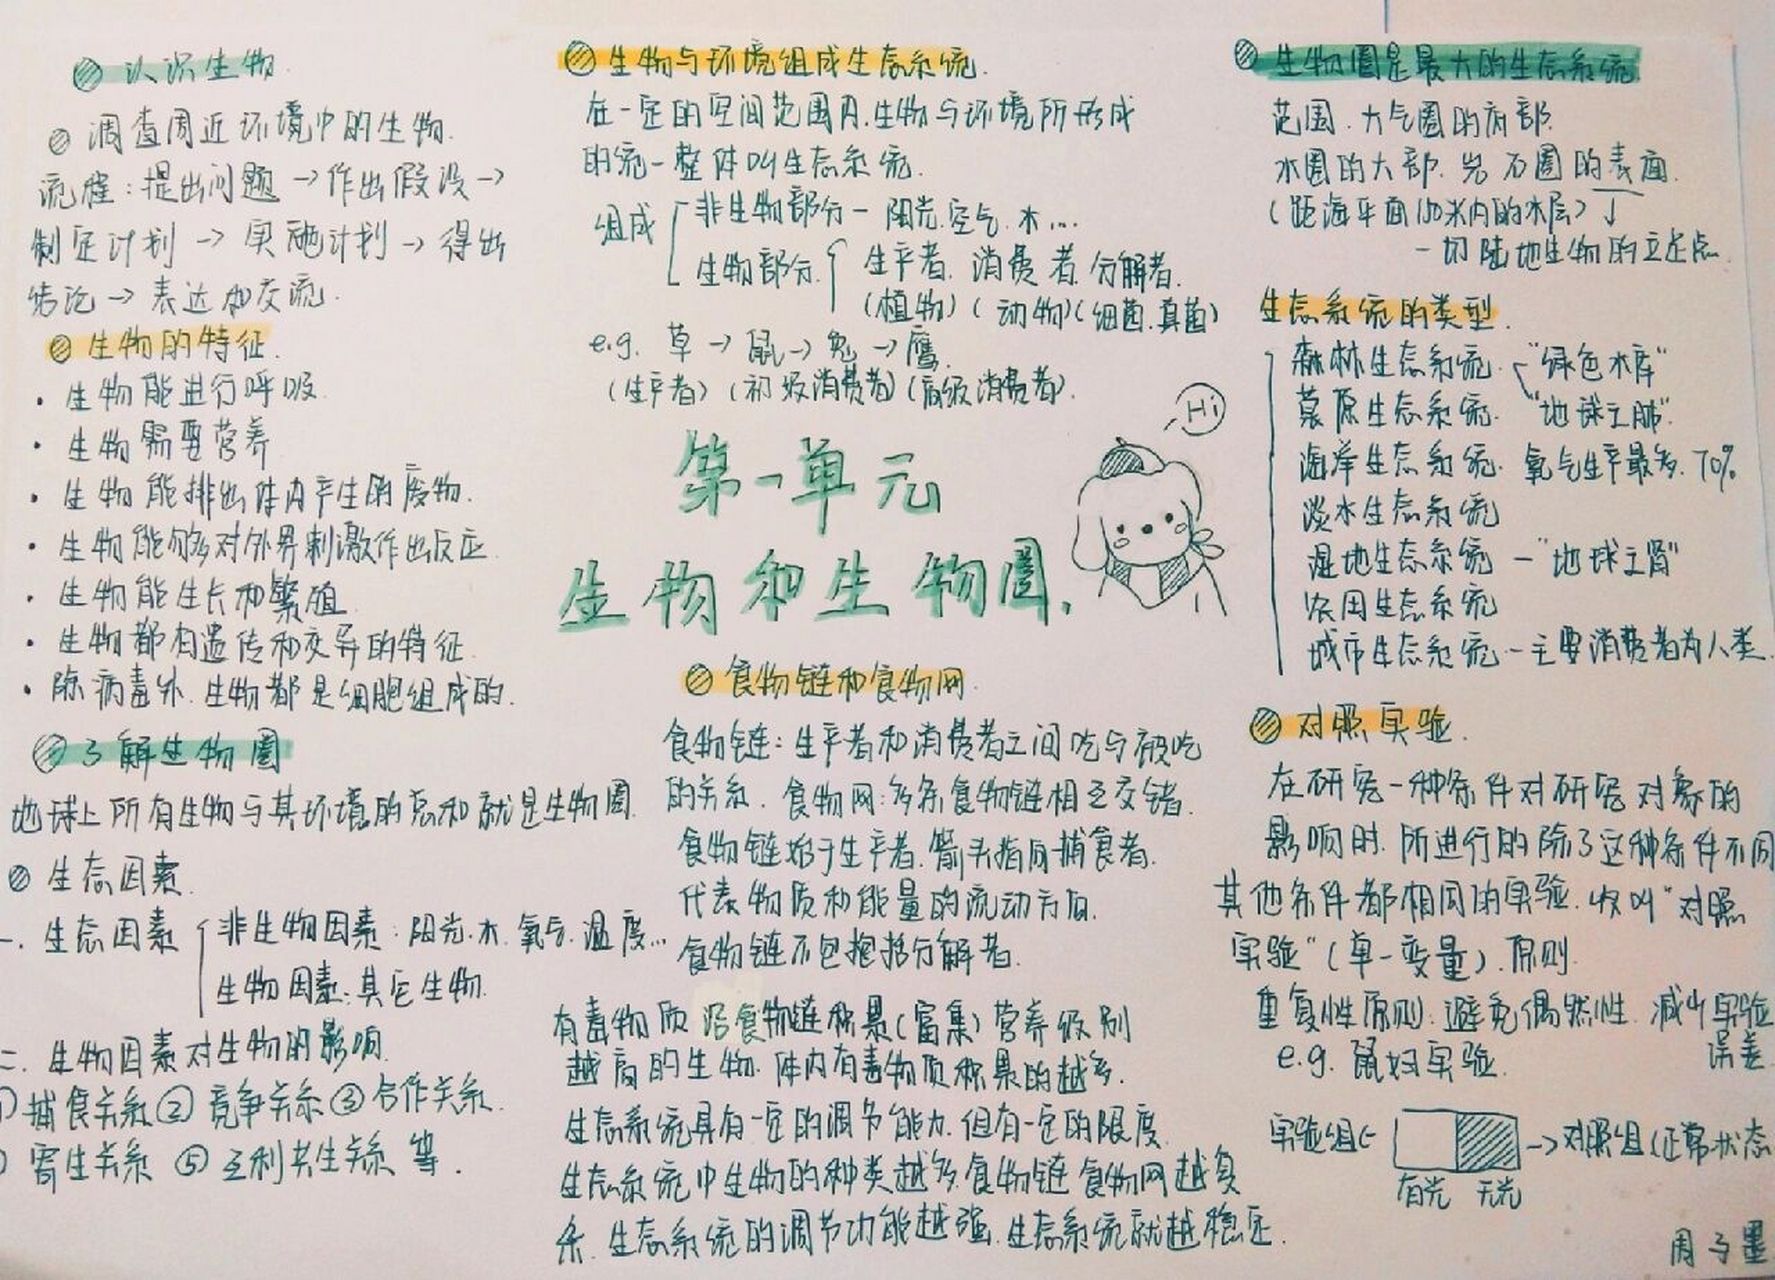 认识生物
调查周近环境中的生物.
流程:提出问题→作出假设→
制定计划→实施计划→得出
结论→表达和交流.
生物的特征.
·生物能进行呼吸.
·生物需要营养
·生物能排出体内产生的废物.
·生物能够多对外界刺激作出反应
·生物能生长和繁殖
·生物都有遗传和变异的特征.
·除病毒外.生物都是细胞组成的.
了解生物圈
地球上所有生物与其环境的总和就是生物圈.
生态因素.
一.生态因素 非生物因素:阳光.水.氧气.温度...
生物因素:其它生物.
二.生物因素对生物的影响.
①捕食关系②竞争关系③合作关系.
寄生关系⑤互利共生关系等.
生物与环境组成生态系统.
在一定的空间范围内.生物与环境所形成
的统一整体叫生态系统.
组成 非生物部分一阳光.空气.水...
生物部分.{生产者.消费者.分解者.
(植物)(动物)(细菌.真菌)
e.g.草→鼠→兔→鹰.
(生产者)(初级消费者)(高级消费者).
Hi
第一单元
生物和生物圈.
食物链和食物网.
食物链:生产者和消费者之间吃与被吃
的关系.食物网:多条食物链相互交错.
食物链始于生产者.箭头指向捕食者.
代表物质和能量的流动方向.
食物链不包括分解者.
有毒物质沿食物链积累(富集)营养级别
越高的生物.体内有毒物质积累的越多.
生态系统具有一定的调节能力.但有一定的限度.
生态系统中生物的种类越多.食物链食物网越复
杂.生态系统的调节功能越强.生态系统就越稳定.
生物圈是最大的生态系统
范围.大气圈的底部.
水圈的大部.岩石圈的表面.
(距海平面150米内的水层)↓
一切陆地生物的立足点.
生态系统的类型.
森林生态系统."绿色水库"
草原生态系统."地球之肺".
海洋生态系统.氧气生产最多.70%
淡水生态系统
湿地生态系统一"地球之肾"
农田生态系统
城市生态系统一主要消费者为人类.
对照实验.
在研究一种条件对研究对象的
影响时.所进行的除了这种条件不同
其他条件都相同的实验.叫"对照
实验"(单一变量).原则.
重复性原则:避免偶然性.减少实验
误差.
e.g.鼠妇实验.
实验组← →对照组(正常状态
有光 无光
周子墨